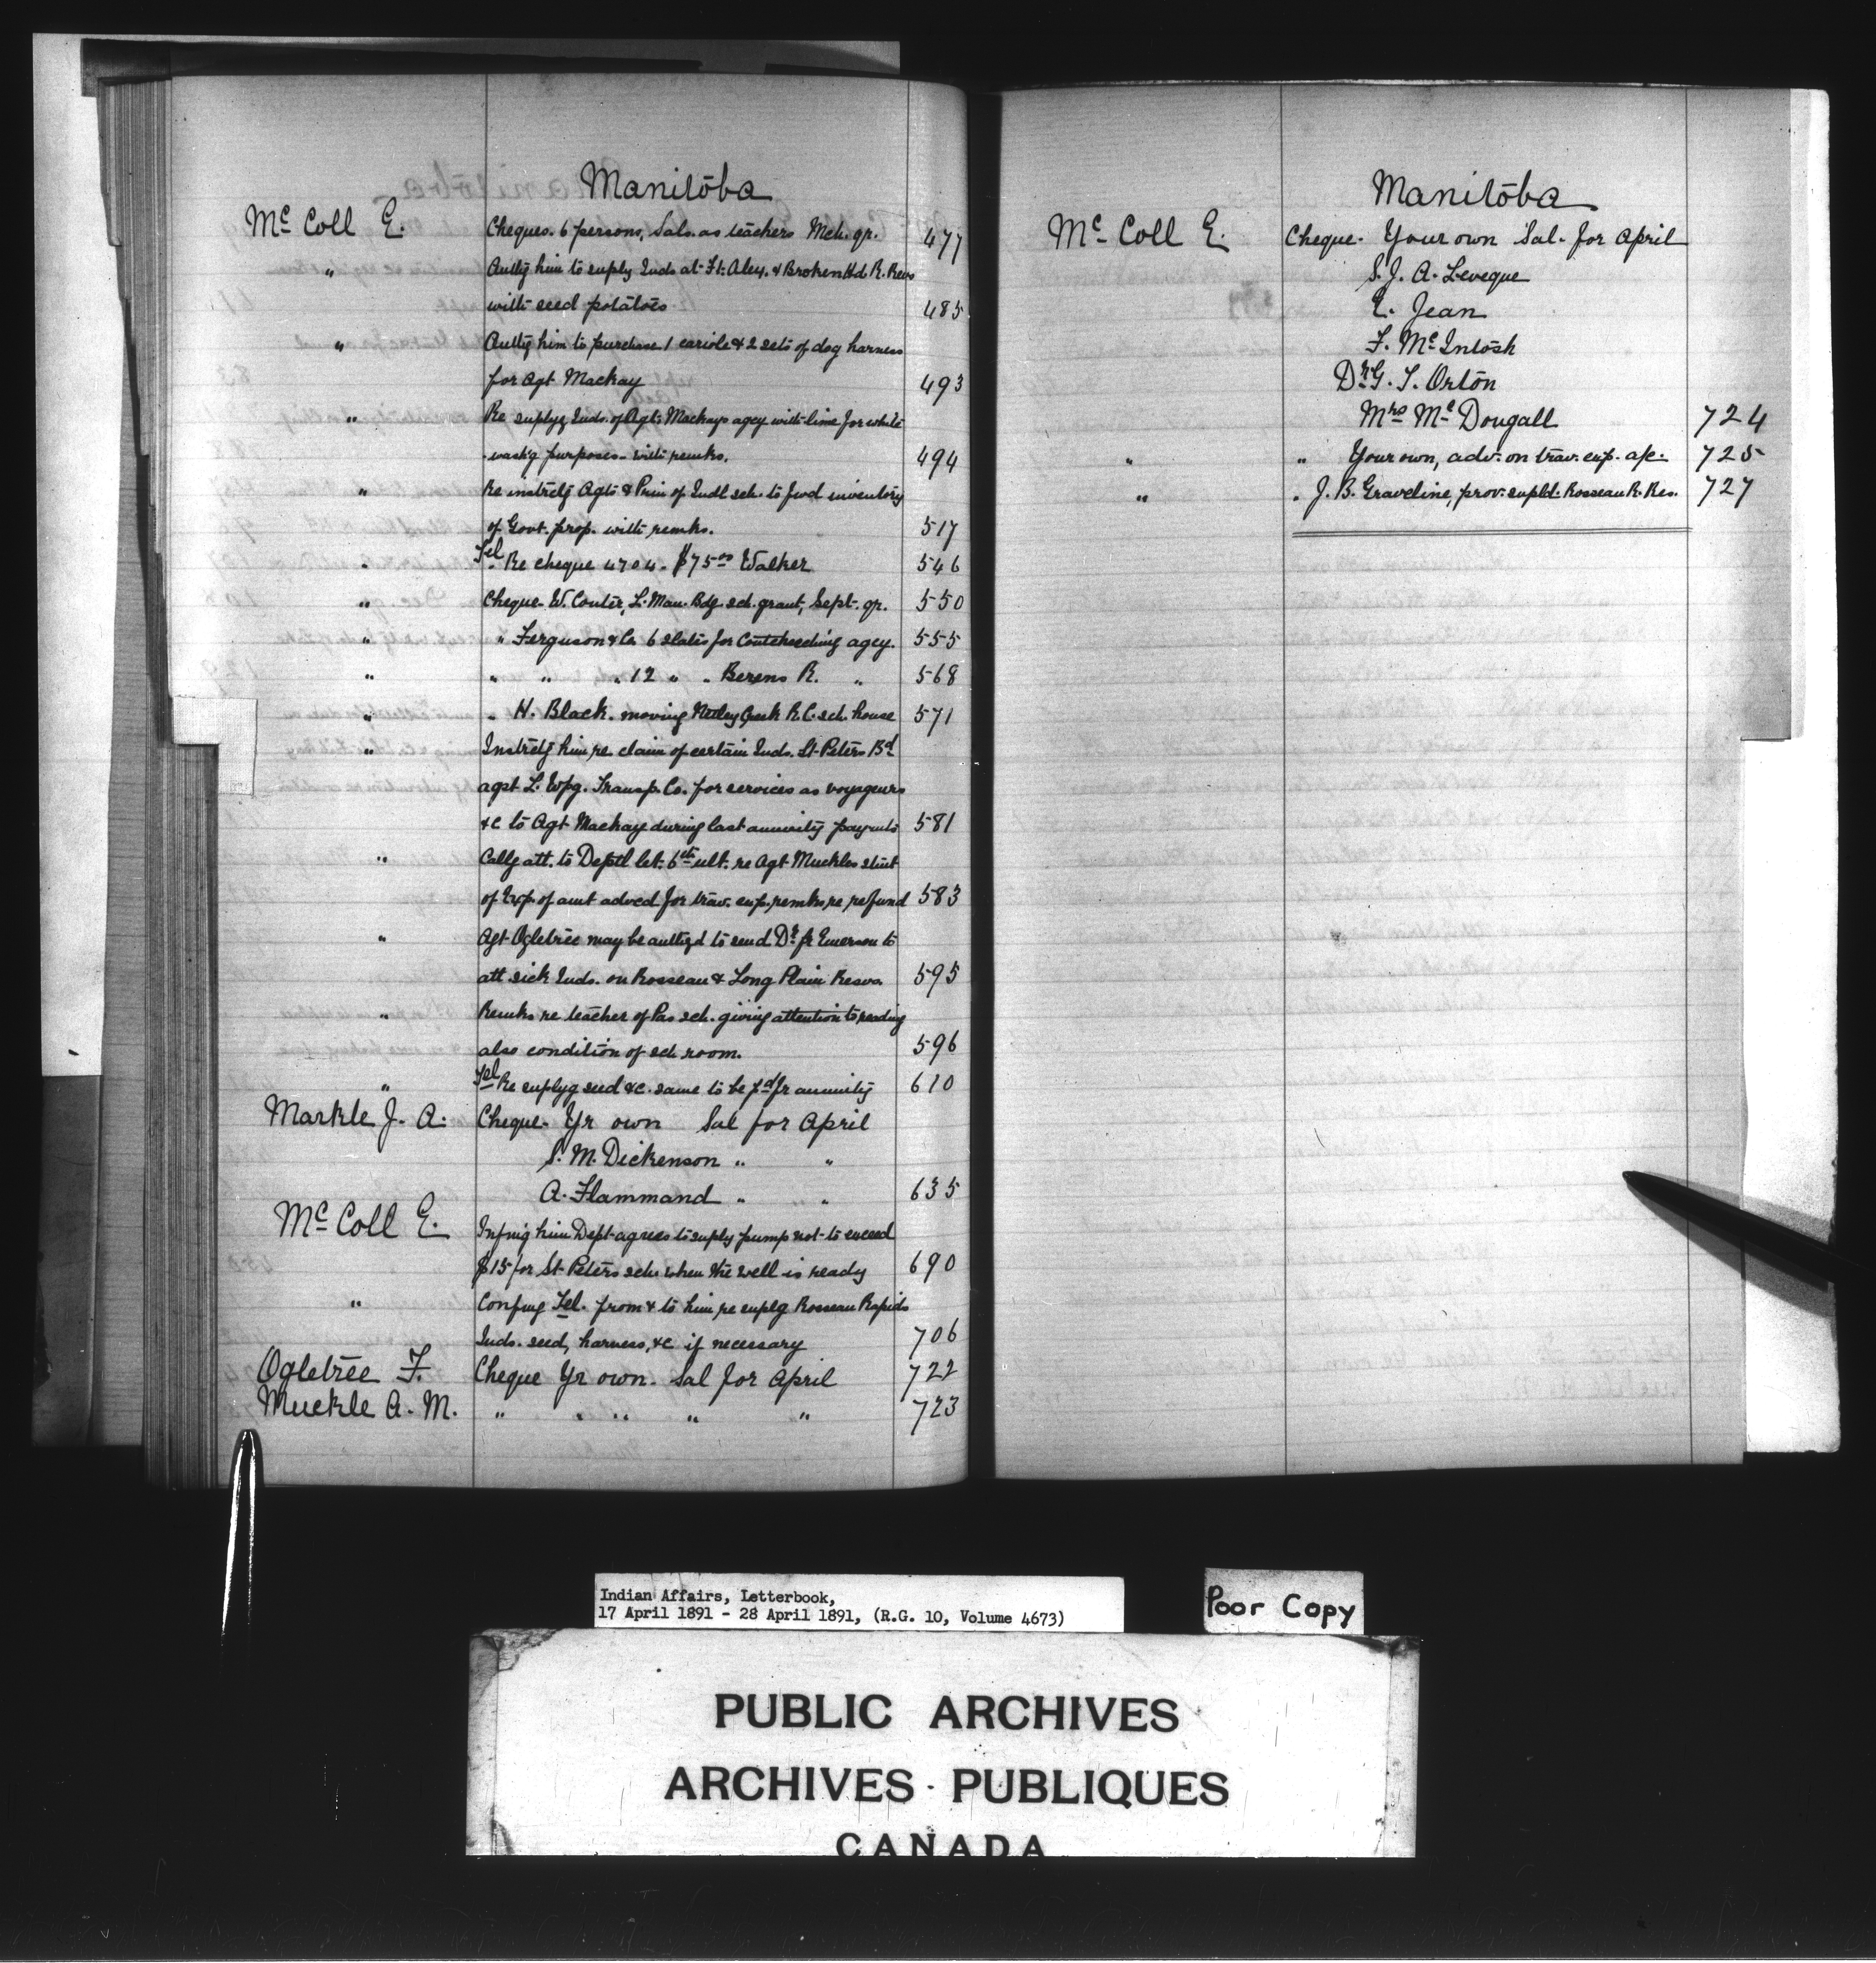 Manitoba
McColl E. Cheques. 6 persons, Sals. as teachers Mch. qr. 477
" Authg him to suply Inds at Ft. Alex. & Broken Hd. R. Revs
with seed potatoes 485
" Authg him to purchase 1 cariole & 2 sets of dog harness
for Agt Mackay 493
" Re suplyg Inds. of Agts Mackays agcy with lime for white
washg purposes - with remks. 494
" Re instrctg Agts & Prin of Indl sch. to fwd inventory
of Govt. prop. with remks. 517
" Tel Re cheque 4704 - $75.00 Walker 546
" Cheque W. Coutër, L. Man. Bdg. sch. grant, Sept. qr. 550
" " Ferguson & Co 6 slates for Coutcheeching agcy. 555
" " " " 12 " " Berens R. " 568
" " H. Black. moving Netley Creek R.C. sch. house 571
" Instrctg him re claim of certain Inds. St. Peters Bd
agst L. Wpg. Transp. Co. for services as voyageurs
&c to Agt Mackay during last annuity paymts 581
" Callg att. to Deptl let. 6th ult. re Agt Muckles stmt
of Exp. of amt advced for trav. exp. remks re refund 583
" Agt Ogletree may be authzd to send Dr. fr Emerson to
att sick Inds. on Rosseau & Long Plain Resvs. 595
" Remks re teacher of Pas sch. giving attention to reading
also condition of sch room. 596
" Tel Re suplyg seed &c. same to be pd fr annuity 610
Markle J. A. Cheque - Yr own Sal for April
S. M. Dickenson " "
A. Flammand " " 635
McColl E. Infmg him Dept agrees to suply pump not to exceed
$15 for St Peters sch. when the well is ready 690
" Confmg Tel. from & to him re suplg Rosseau Rapids
Inds. seed, harness, &c if necessary 706
Ogletree F. Cheque Yr own. Sal for April 722
Muckle A. M. " " " " " 723
Manitoba
McColl E. Cheque. Your own Sal. for April
S. J. A. Leveque
E. Jean
F. McIntosh
Dr G. T. Orton
Mrs McDougall 724
" " Your own, adv. on trav. exp. a/c. 725
" " J. B. Graveline, prov. supld. Rosseau R. Res. 727
Indian Affairs, Letterbook,
17 April 1891 - 28 April 1891, (R.G. 10, Volume 4673)
Poor Copy
PUBLIC ARCHIVES
ARCHIVES PUBLIQUES
CANADA